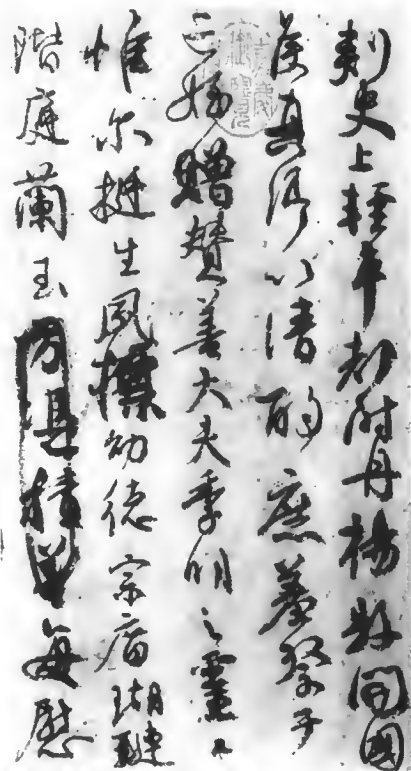 刺史上輕車都尉丹楊縣開國
侯真卿以清酌庶羞祭于
亡姪贈贊善大夫季明之靈曰
惟爾挺生夙標幼德宗廟瑚璉
階庭蘭玉每慰